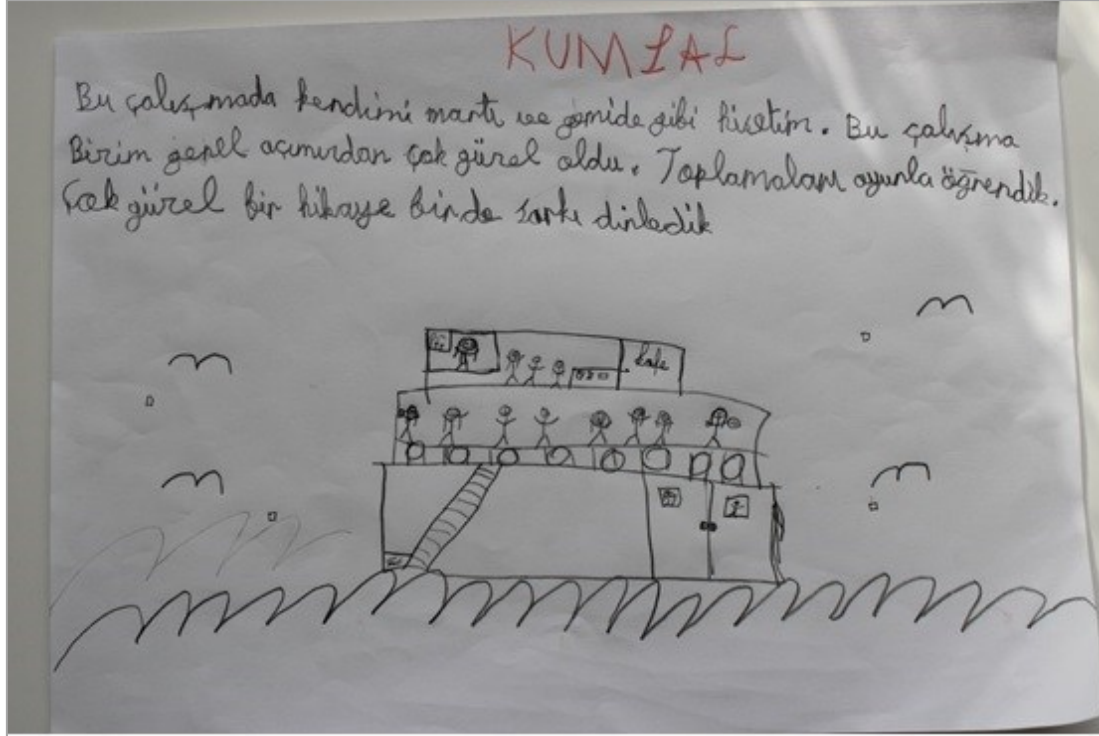 KUMSAL
Bu çalışmada kendimi martı ve gemide gibi hisetim. Bu çalışma
Birim genel açımırdan çok gürel oldu. Toplamaları oyunla öğrendik.
Çok gürel bir hikaye birde şarkı dinledik
kafe